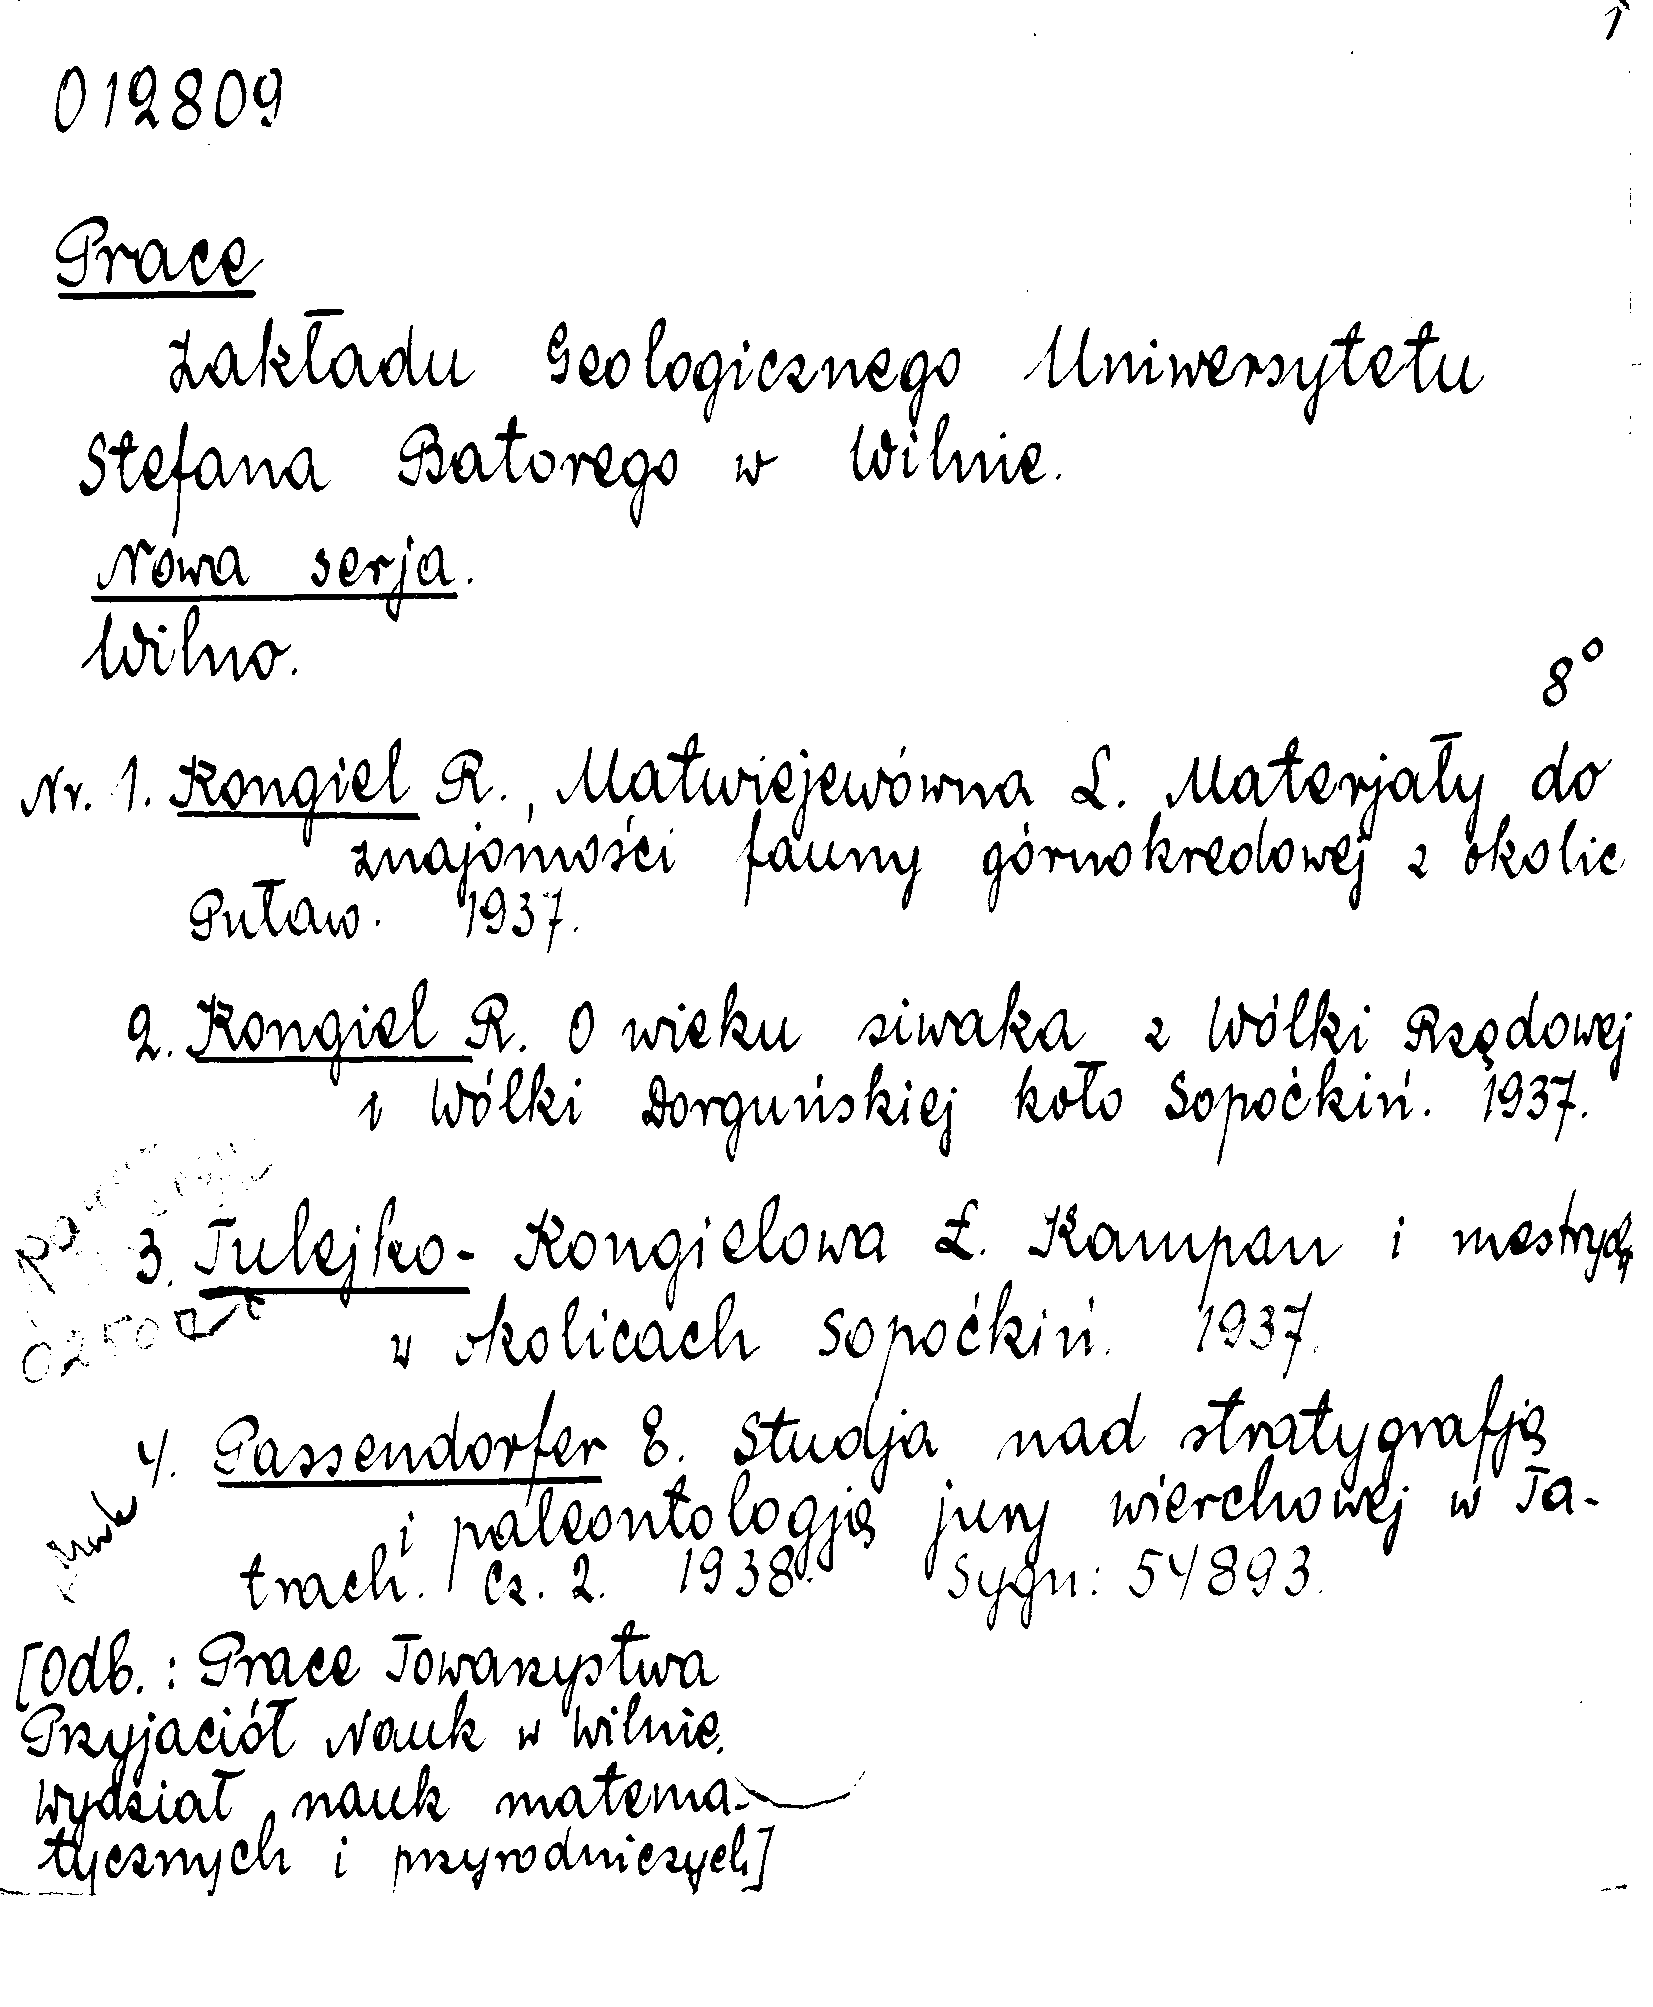 1
012809
Prace
Zakładu Geologicznego Uniwersytetu
Stefana Batorego w Wilnie.
Nowa serja.
Wilno.
8°
Nr. 1. Kongiel R., Matwiejewówna L. Materjały do
znajomości fauny górnokredowej z okolic
Puław. 1937.
2. Kongiel R. O wieku siwaka z Wólki Rządowej
i Wólki Dorguńskiej koło Sopoćkiń. 1937.
3. Tulejko-Kongielowa Ł. Kampan i mastrycht
w okolicach Sopoćkiń. 1937.
0250
4. Passendorfer E. Studja nad stratygrafją
i paleontologją jury wierchowej w Ta-
trach. Cz. 2. 1938. Sygn: 54893.
[Odb.: Prace Towarzystwa
Przyjaciół Nauk w Wilnie.
Wydział nauk matema-
tycznych i przyrodniczych]